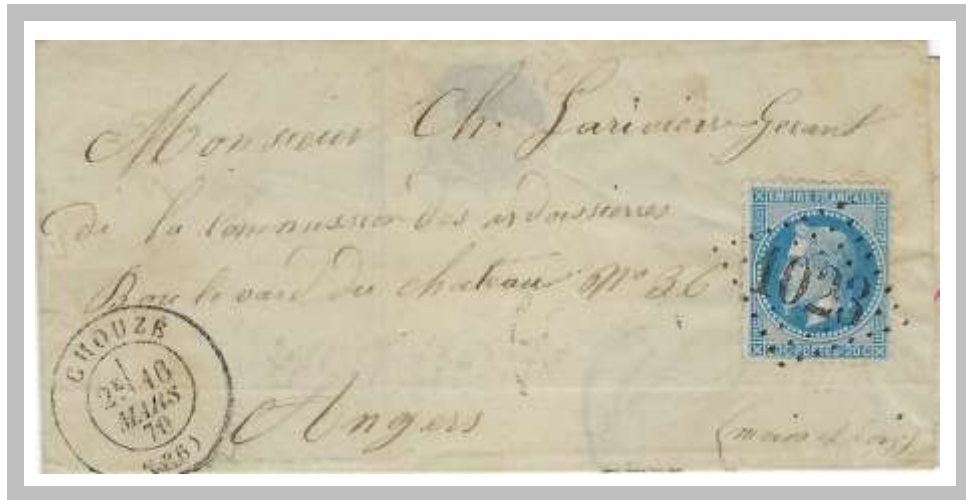 Monsieur Ch. Larivière Gerant
de la Commission des ardoissierres
Boulevard du chateau N° 36
Angers
(maine et Loire)
EMPIRE FRANÇAIS
1023
20 C POSTES 20 C
CHOUZÉ
2E 10
MARS
70